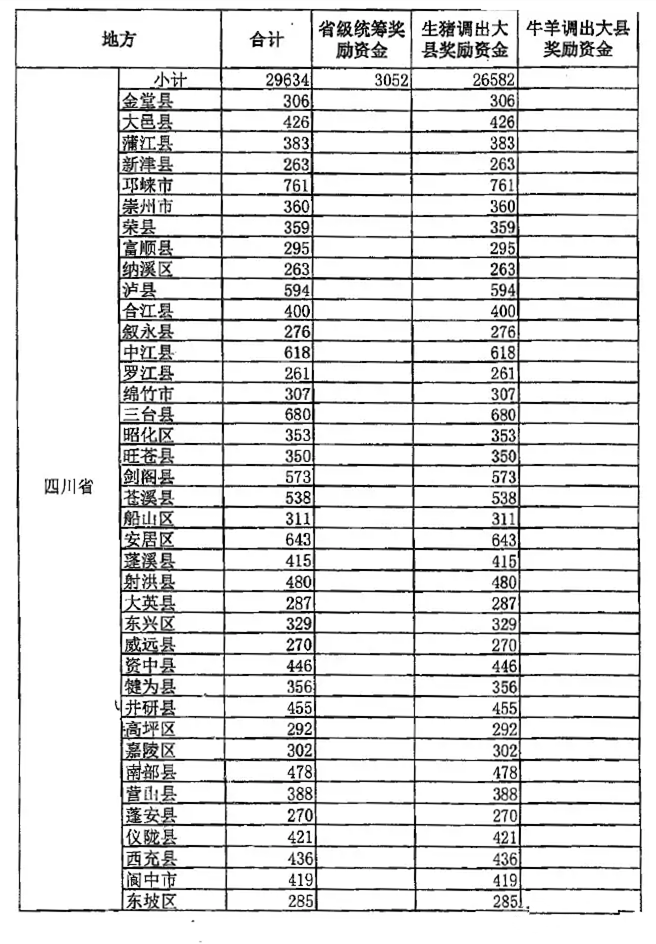 地方 合计 省级统筹奖励资金 生猪调出大县奖励资金 牛羊调出大县奖励资金
四川省 小计 29634 3052 26582
金堂县 306 306
大邑县 426 426
蒲江县 383 383
新津县 263 263
邛崃市 761 761
崇州市 360 360
荣县 359 359
富顺县 295 295
纳溪区 263 263
泸县 594 594
合江县 400 400
叙永县 276 276
中江县 618 618
罗江县 261 261
绵竹市 307 307
三台县 680 680
昭化区 353 353
旺苍县 350 350
剑阁县 573 573
苍溪县 538 538
船山区 311 311
安居区 643 643
蓬溪县 415 415
射洪县 480 480
大英县 287 287
东兴区 329 329
威远县 270 270
资中县 446 446
犍为县 356 356
井研县 455 455
高坪区 292 292
嘉陵区 302 302
南部县 478 478
营山县 388 388
蓬安县 270 270
仪陇县 421 421
西充县 436 436
阆中市 419 419
东坡区 285 285